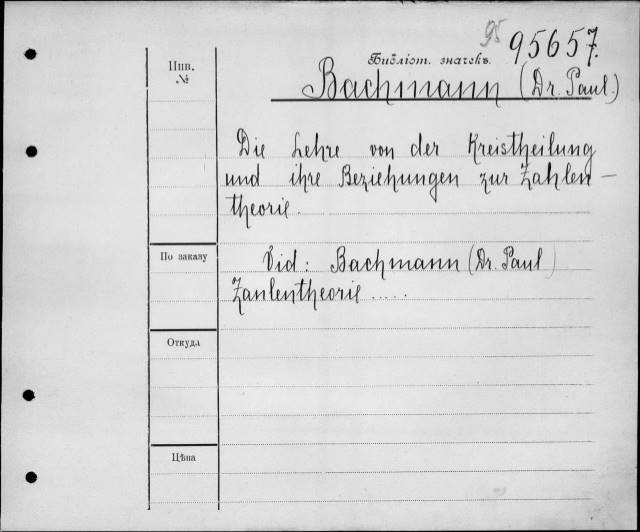 95
95657.
Библіот. значекъ.
Инв.
№
Bachmann (Dr. Paul.)
Die Lehre von der Kreistheilung
und ihre Beziehungen zur Zahlen-
theorie.
По заказу
Vid: Bachmann (Dr. Paul)
Zahlentheorie.....
Откуда
Цѣна